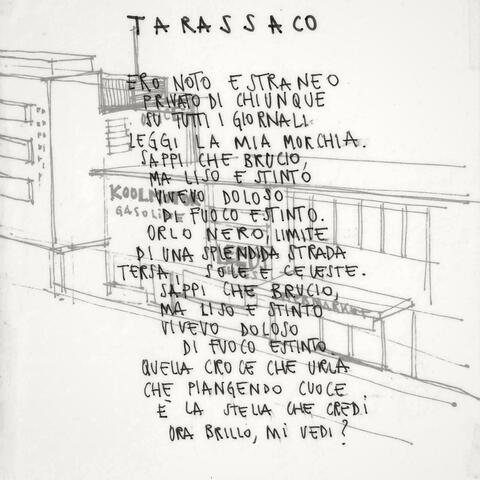 TARASSACO
ERO NOTO E STRANEO
PRIVATO DI CHIUNQUE
SU TUTTI I GIORNALI
LEGGI LA MIA MORCHIA.
SAPPI CHE BRUCIO,
MA LISO E STINTO
VIVEVO DOLOSO
DI FUOCO ESTINTO.
ORLO NERO, LIMITE
DI UNA SPLENDIDA STRADA
TERSA SOLE E CELESTE.
SAPPI CHE BRUCIO,
MA LISO E STINTO
VIVEVO DOLOSO
DI FUOCO ESTINTO
QUELLA CROCE CHE URLA
CHE PIANGENDO CUOCE
È LA STELLA CHE CREDI
ORA BRILLO, MI VEDI?